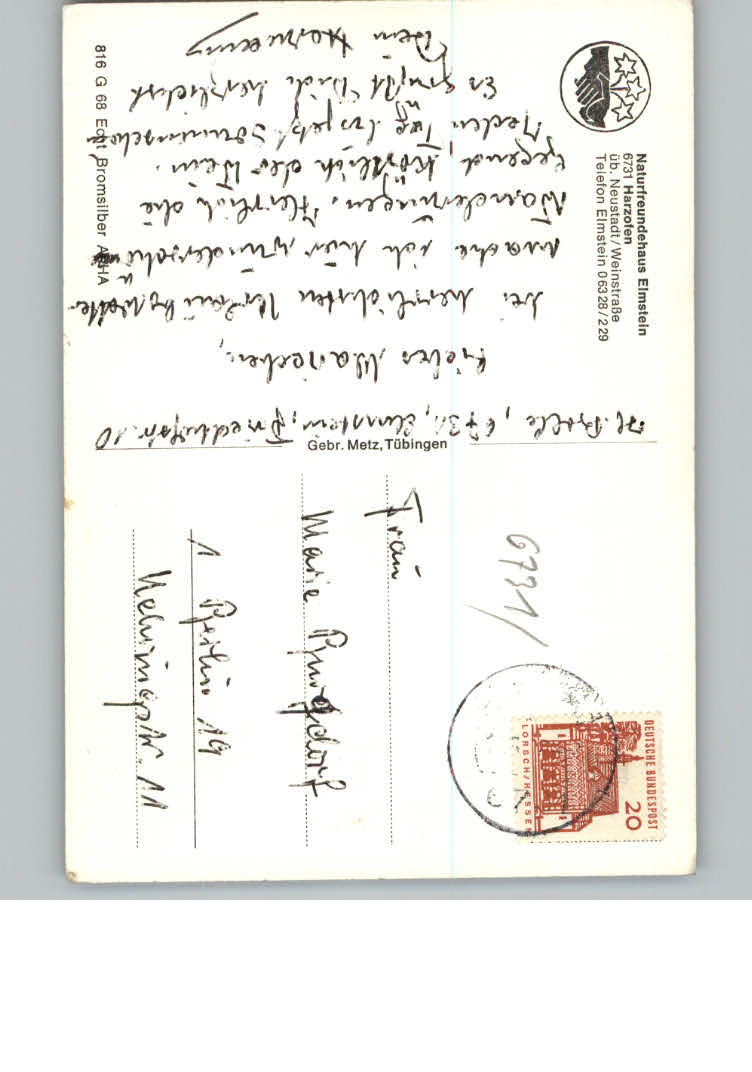 Naturfreundehaus Elmstein
6731 Harzofen
üb. Neustadt/Weinstraße
Telefon Elmstein 06328/229
6731, Elmstein,
Liebes Mariechen,
bei herrlichsten
mache ich hier wunderschöne
Wanderungen. Herrlich die
Gegend, köstlich der Wein.
Jeden Tag bis jetzt Sonnenschein
Es grüßt Dich herzlichst
Dein
816 G 68 Echt Bromsilber
Gebr. Metz, Tübingen
6731/
DEUTSCHE BUNDESPOST
20
LORSCH/HESSEN
Frau
Marie Burgdorf
1 Berlin 19
Nehringstr. 11